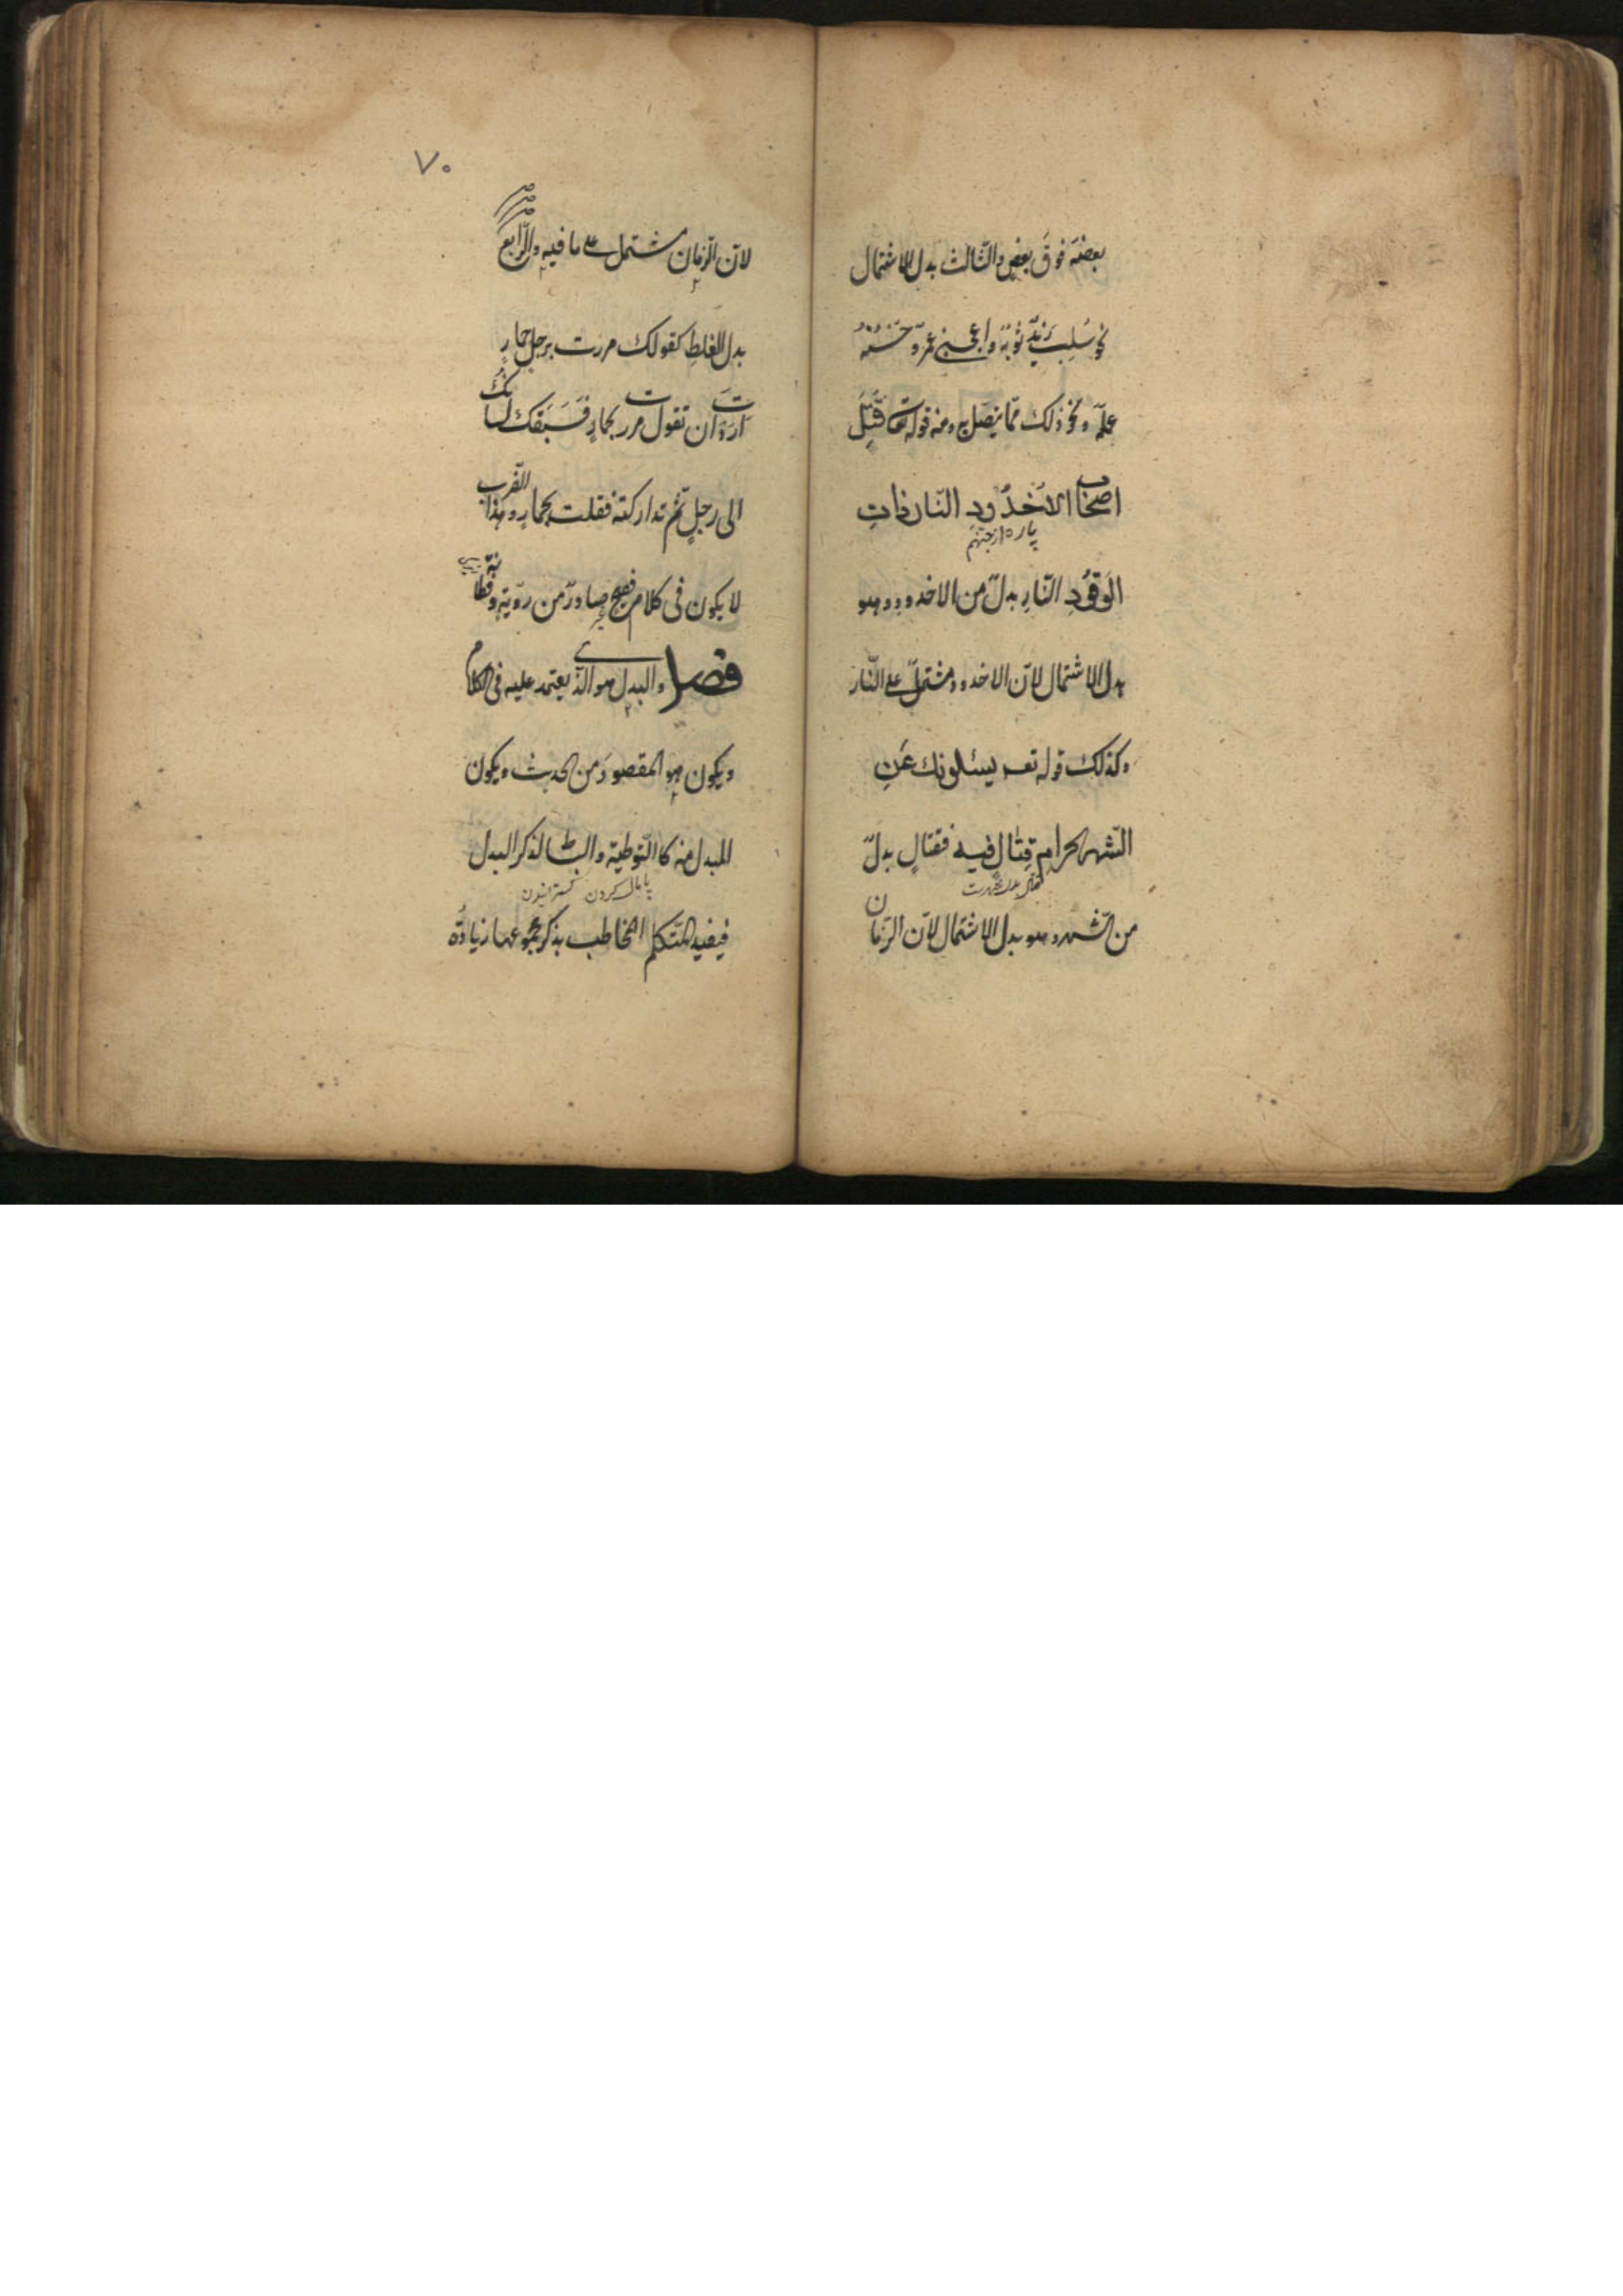 بعضه فوق بعض والثّالث بدل الاشتمال
نحو سُلِبَ زَيْدٌ ثوبُه واعجبنى عمرٌو حُسْنُهُ
علمه ونحو ذلك ممّا يتصل به ومنه قوله تع قُتِلَ
اصحاب الاُخْدُود النّار ذاتِ
پاره از جهنم
الوَقُودِ النّارِ بدلٌ من الاخدود وهو
بدل الاشتمال لانّ الاخدود مشتملٌ على النّار
وكذلك قوله تعـ يسئلونك عَنِ
الشّهر الحرامِ قِتالٍ فيه فقتالٍ بدلٌ
من الشّهر وهو بدل الاشتمال لانّ الزّمان
٧٠
لانّ الزّمان مشتمل على ما فيه والرّابع
بدل الغلط كقولك مررت برجل حمارٍ
اَرَدْتَ ان تقول مررت بحمارٍ فَسَبَقَكَ لسانُك
الى رجلٍ ثمّ تداركته فقلت بحمارٍ وهذا الضّرب
لا يكون فى كلام فصيح صادرٌ من رويّة وفطانة
فصل والبدل هو الّذى يعتمد عليه فى الكلام
ويكون هو المقصود من الحديث ويكون
المبدل منه كالتّوطية والبساط لذكر البدل
پایمال کردن گسترانیدن
فيفيد المتكلم المخاطب بذكر مجموعهما زيادة